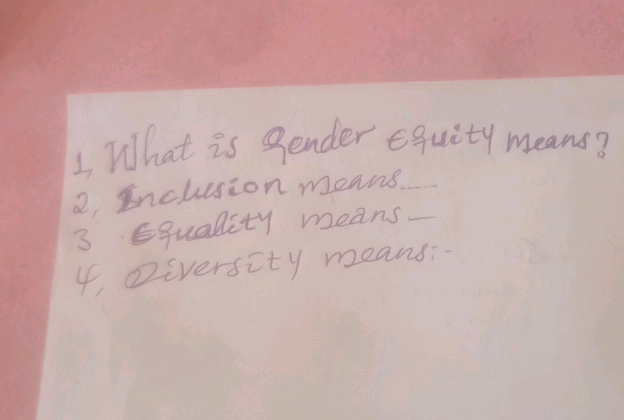 1, What is Gender Equity means?
2, Inclusion means.....
3 Equality means —
4, Diversity means:-